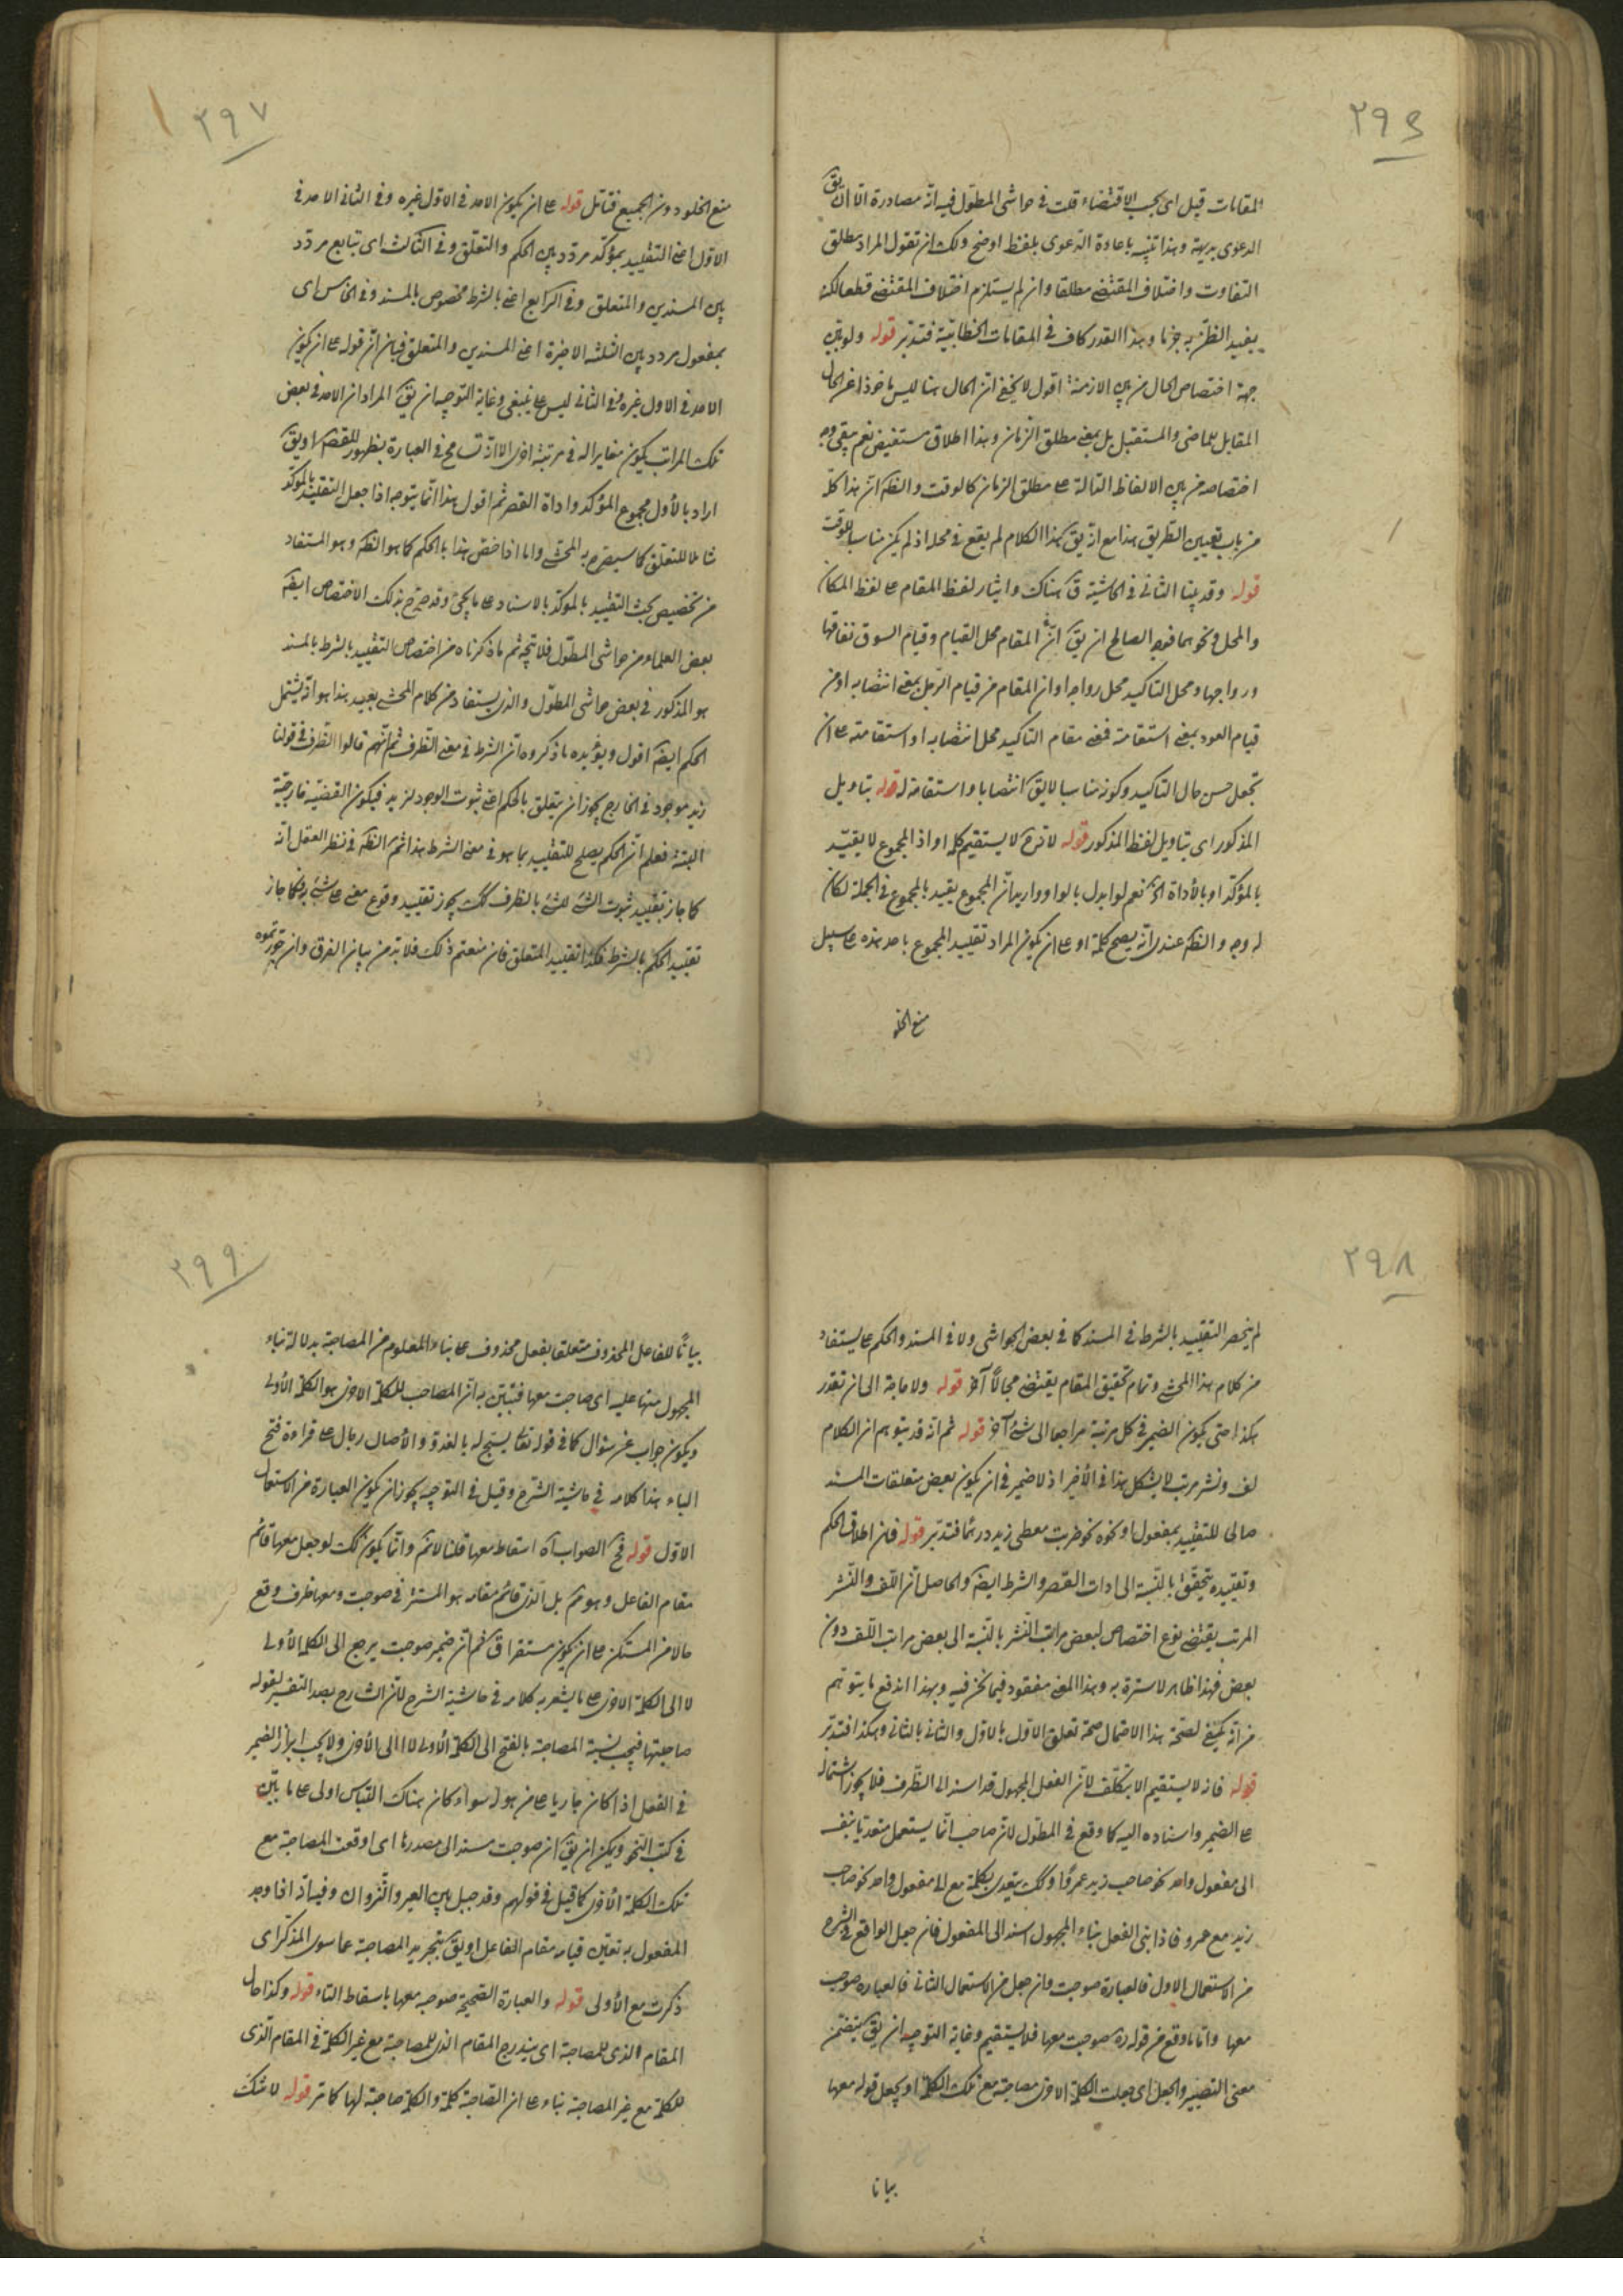 ٢٩٦
المقامات قيل اى بحسب الاقتضاء قلت فى حواشى المطول فيه انه مصادرة الا ان يق
الدعوى بديهية وهذا تنبيه باعادة الدعوى بلفظ اوضح ولك ان تقول المراد مطلق
التفاوت واختلاف المقتضى مطلقا وان لم يستلزم اختلاف المقتضى قطعا لكنه
يفيد الظن به جزما وهذا القدر كاف فى المقامات الخطابية فتدبر قوله ولو بين
جهة اختصاص الحال من بين الازمنة اقول لا يخفى ان الحال هنا ليس ماخوذا من الحال
المقابل للماضى والمستقبل بل بمعنى مطلق الزمان وهذا اطلاق مستفيض نعم يبقى وجه
اختصاصه من بين الالفاظ الدالة على مطلق الزمان كالوقت والظ ان هذا كله
من باب تعيين الطريق هذا مع انه يق هذا الكلام لم يقع فى محله اذ لم يكن مناسبا للوقت
قوله وقد بينا الثانى فى الحاشية ق هناك وايثار لفظ المقام على لفظ المكان
والمحل ونحوهما فوجه الصالح ان يق ان المقام محل القيام وقيام السوق نفاقها
ورواجها ومحل التاكيد محل رواجه او ان المقام من قيام الرجل بمعنى انتصابه او من
قيام العود بمعنى استقامته فمعنى مقام التاكيد محل انتصابه او استقامته على ان
تجعل حسن حال التاكيد وكونه مناسبا لايق انتصابا واستقامة له قوله بتاويل
المذكور اى بتاويل لفظ المذكور قوله لا ترى لا يستقيم كلمة او اذ المجموع لا يقيد
بالمؤكد او بالأداة الخ نعم لو ابدل بالواو واريد ان المجموع يقيد بالمجموع فى الجملة لكان
له وجه والظ عندى انه يصح كلمة او على ان يكون المراد تقييد المجموع باحد هذه على سبيل
منع الخلو
٢٩٧
منع الخلو دون الجميع فتامل قوله على ان يكون الامر فى الاول غيره وفى الثانى الامر فى
الاول اعنى التقييد بمؤكد مردد بين الحكم والتعلق وفى الثالث اى بتابع مردد
بين المسندين والمتعلق وفى الرابع اعنى بالشرط مخصوص بالمسند وفى الخامس اى
بمفعول مردد بين الثلثة الاخيرة اعنى المسندين والمتعلق فبيان ان قوله على ان يكون
الامر فى الاول غيره فى الثانى ليس على ما ينبغى وغاية التوجيه ان يق المراد ان الامر فى بعض
تلك المراتب يكون مغايرا له فى مرتبة اخرى الا انه تسامح فى العبارة بظهور المقصد او يق
اراد بالأول مجموع المؤكد واداة القصر ثم اقول هذا انما يتوجه اذا جعل التقييد بالمؤكد
شاملا للتعلق كما سيصرح به المحشى واما اذا خص هذا بالحكم كما هو الظ وهو المستفاد
من تخصيص بحث التقييد بالمؤكد بالاسناد على ما يجئ وقد صرح بذلك الاختصاص ايض
بعض العلماء من حواشى المطول فلا تجه ثم ما ذكرناه من اختصاص التقييد بالشرط بالمسند
هو المذكور فى بعض حواشى المطول والذى يستفاد من كلام المحشى بعيد هذا هو انه يشتمل
الحكم ايض اقول ويؤيده ما ذكروه ان الشرط فى معنى الظرف ثم انهم قالوا الظرف فى قولنا
زيد موجود فى الخارج يجوز ان يتعلق بالحكم اعنى ثبوت الوجود لزيد فيكون القضية خارجية
البتة فعلم ان الحكم يصلح للتقييد بما هو فى معنى الشرط هذا ثم الظ فى نظر العقل انه
كما جاز تقييد ثبوت الشئ للشئ بالظرف كك يجوز تقييد وقوع معنى على شئ به فكما جاز
تقييد الحكم بالشرط فكذا تقييد المتعلق فان منعتم ذلك فلا بد من بيان الفرق وان جوزتموه
٢٩٨
لم ينحصر التقييد بالشرط فى المسند كما فى بعض الحواشى ولا فى المسند والحكم على ما يستفاد
من كلام هذا المحشى وتمام تحقيق المقام يقتضى مجالا آخر قوله ولا حاجة الى ان تقدر
هكذا حتى يكون الضمير فى كل مرتبة مراجعا الى شئ آخر قوله ثم انه قد يتوهم ان الكلام
لف ونشر مرتب لا يشكل هذا فى الأخير اذ لا ضير فى ان يكون بعض متعلقات المسند
صالحا للتقييد بمفعول او نحوه نحو ضربت معطى زيد درهما فتدبر قوله فان اطلاق الحكم
وتقييده يتحقق بالنسبة الى ادات القصر والشرط ايض والحاصل ان اللف والنشر
المرتب يقتضى نوع اختصاص لبعض مراتب النشر بالنسبة الى بعض مراتب اللف دون
بعض فهذا ظاهر لا سترة به وهذا المعنى مفقود فيما نحن فيه وبهذا اندفع ما يتوهم
من انه يكفى لصحة هذا الاحتمال صحة تعلق الاول بالاول والثانى بالثانى وهكذا فتدبر
قوله فانه لا يستقيم الا بتكلف لان الفعل المجهول قد اسند الى الظرف فلا يجوز اشتماله
على الضمير واسناده اليه كما وقع فى المطول لان صاحب انما يستعمل متعديا بنفسه
الى مفعول واحد نحو صاحب زيد عمروا وكك يتعدى بكلمة مع الى مفعول واحد نحو صاحب
زيد مع عمرو فاذا بنى الفعل بناء المجهول اسند الى المفعول فان جعل الواقع فى الشرح
من الاستعمال الاول فالعبارة صوحبت وان جعل من الاستعمال الثانى فالعبارة صوحب
معها واما ما وقع من قوله ره صوحبت معها فلا يستقيم وغاية التوجيه ان يق يتضمن
معنى التصيير والجعل اى جعلت الكلمة الاولى مصاحبة مع تلك الكلمة او يجعل قوله معها
بيانا
٢٩٩
بيانا للفاعل المحذوف متعلقا بفعل محذوف على بناء المعلوم من المصاحبة بدلالة بناء
المجهول منها عليه اى صاحبت معها فتبين به ان المصاحب للكلمة الاخرى هو الكلمة الأولى
ويكون جواب عن سؤال كما فى قوله تعالى يسبح له بالغدو والأصال رجال على قراءة فتح
الباء هذا كلامه فى حاشية الشرح وقيل فى التوجيه يجوز ان يكون العبارة من الاستعمال
الاول قوله فح الصواب آه اسقاط معها قلنا لا نم وانما يكون كك لو جعل معها قائم
مقام الفاعل وهو نم بل الذى قائم مقامه هو المستتر فى صوحبت ومعها ظرف وقع
حالا من المستكن على ان يكون مستقرا ق ثم ان ضمير صوحبت يرجع الى الكلمة الأولى
لا الى الكلمة الاخرى على ما يشعر به كلامه فى حاشية الشرح لان الشارح بصدد التفسير لقوله
صاحبتها فيجب نسبة المصاحبة بالفتح الى الكلمة الأولى لا الى الأخرى ولا يجب ابراز الضمير
فى الفعل اذا كان جاريا على من هو له سواء كان هناك التباس اولى على ما بين
فى كتب النحو ويمكن ان يق ان صوحبت مسند الى مصدرها اى اوقعت المصاحبة مع
تلك الكلمة الأخرى كما قيل فى قولهم وقد حيل بين العير والنزوان وفيه انه اذا وجد
المفعول به تعين قيامه مقام الفاعل او يق بتجريد المصاحبة عما سوى المذكر اى
ذكرت مع الأولى قوله والعبارة الصحيحة صوحبه معها باسقاط التاء قوله وكذا حال
المقام الذى للمصاحبة اى يندرج المقام الذى للمصاحبة مع غير الكلمة فى المقام الذى
للكلمة مع غير المصاحبة بناء على ان الصاحبة كلمة والكلمة صاحبة لها كما تر قوله لا شك